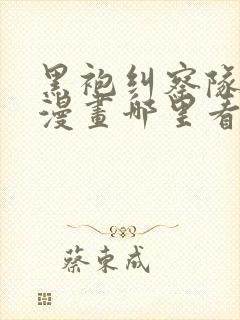 黑袍纠察队
漫畫哪里看
蔡東成